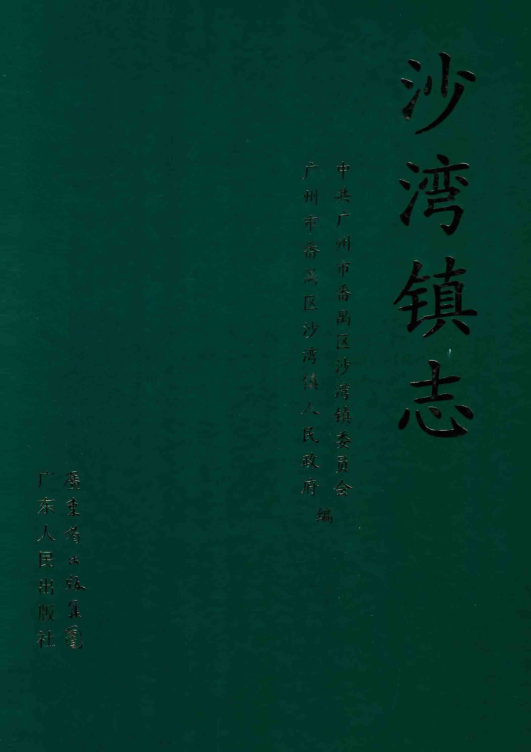 沙湾镇志
中共广州市番禺区沙湾镇委员会
广州市番禺区沙湾镇人民政府
编
广东省出版集团
广东人民出版社